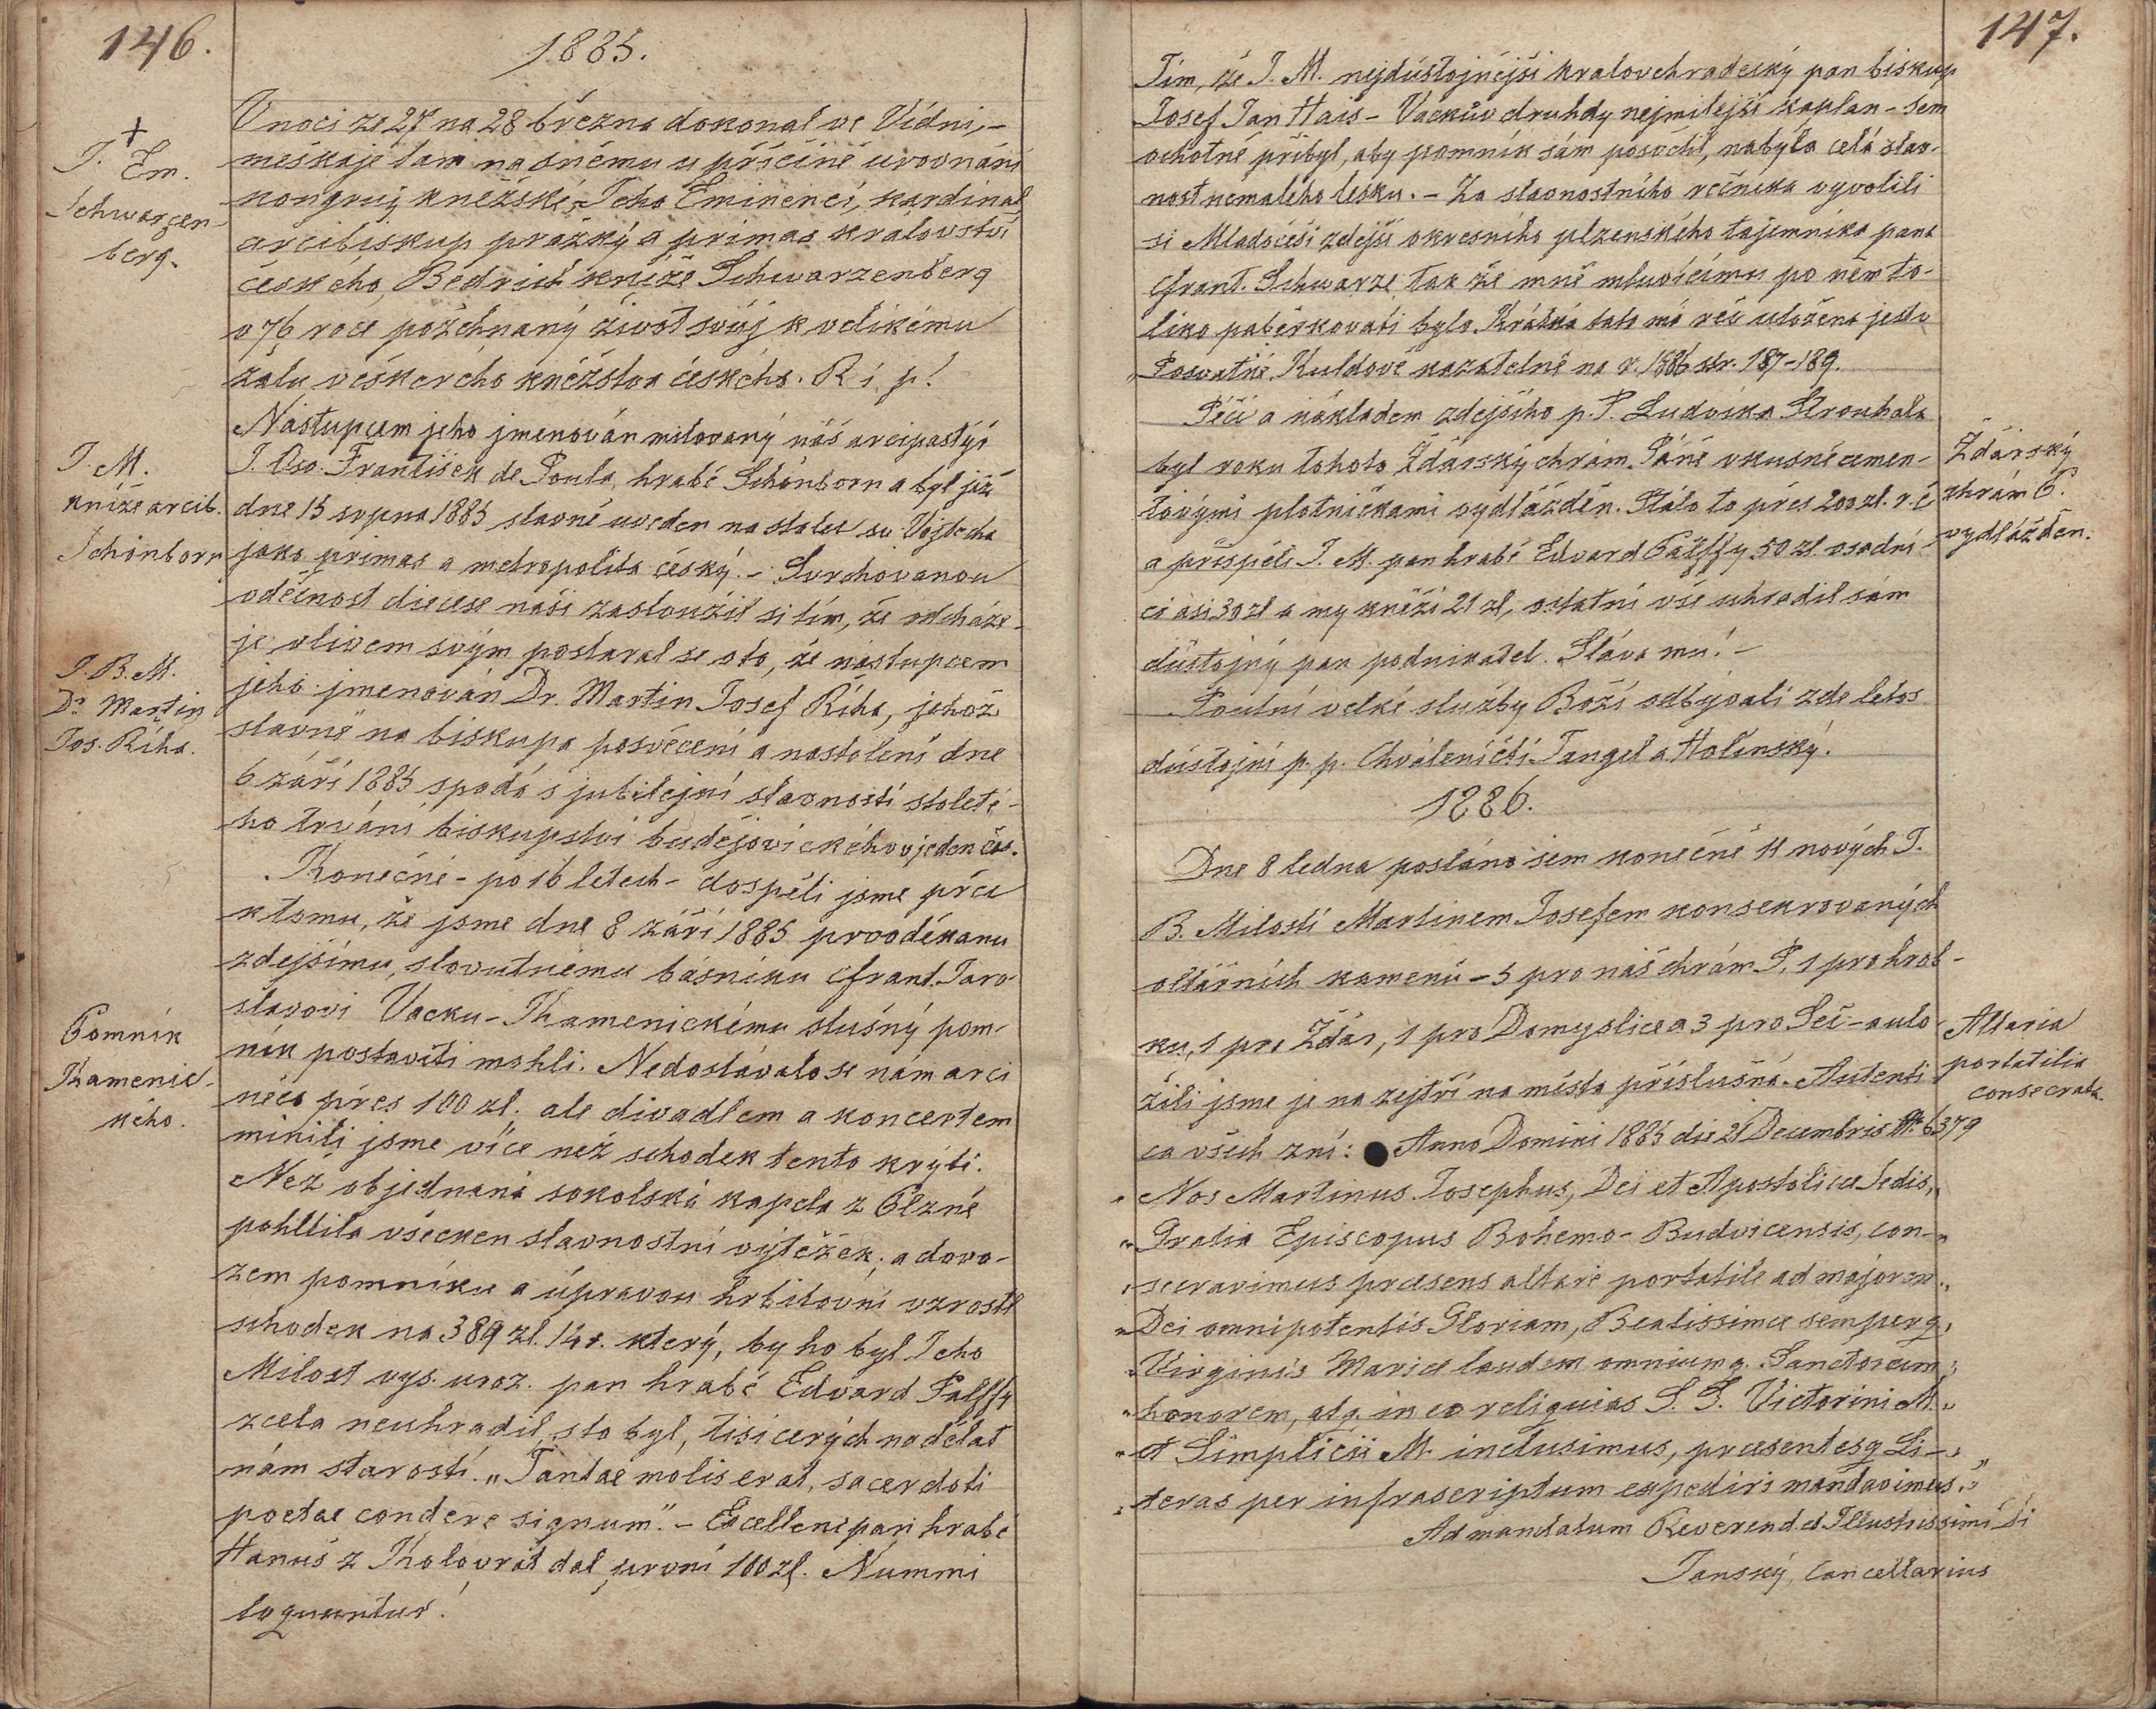 146.
1885.
V noci ze 27 na 28 března dokonal ve Vídni, -
meškaje tam na sněmu u příčině urovnání
kongruy kněžské, Jeho Eminencí, kardinal
arcibiskup pražský a primas království
českého, Bedřich kníže Schwarzenberg
v 76 roce požehnaný život svůj k velikému
žalu veškerého kněžstva českého. R i p!
Nástupcem jeho jmenován milovaný náš arcipastýř
J. Osv. František de Paula, hrabě Schönborn a byl již
dne 15 srpna 1885 slavně uveden na stolec sv. Vojtěcha
jako primas a metropolita český. - Svrchovanou
vděčnost diecese naší zasloužil si tím, že odcháze-
je vlivem svým postaral se o to, že nástupcem
jeho jmenován Dr. Martin Josef Říha, jehož
slavné na biskupa posvěcení a nastolení dne
6 září 1885 spadá s jubilejní slavností stoleté-
ho trvání biskupství budějovického v jeden čas.
Konečně - po 16 letech - dospěli jsme přece
k tomu, že jsme dne 8 září 1885 prvoděkanu
zdejšímu, slovutnému básníku Frant. Jaro-
slavovi Vacku-Kamenickému slušný pom-
ník postaviti mohli. Nedostávalo se nám arci
něco přes 100 zl. ale divadlem a koncertem
mínili jsme více než schodek tento krýti.
Než objednaná sokolská kapela z Plzně
pohltila všecken slavnostní výtěžek; a dovo-
zem pomníku a úpravou hřbitovní vzrostl
schodek na 389 zl. 14 r. který, by ho byl Jeho
Milost vys. uroz. pan hrabě Edvard Palffy
zcela neuhradil, sto byl, tisicerých nadělat
nám starostí. „Tantae molis erat, sacerdoti
poetae condere signum". - Excellenc pan hrabě
Hanuš z Kolovrat dal první 100 zl. Nummi
loquuntur!
+
J. Em.
Schwarzen-
berg.
J. M.
kníže arcib.
Schönborn
J. B. M.
Dr Martin
Jos. Říha.
Pomník
Kamenic-
kého.
147.
Tím, že J. M. nejdůstojnější kralovehradecký pan biskup
Josef Jan Hais - Vackův druhdy nejmilejší kaplan - sem
ochotně přibyl, aby pomník sám posvětil, nabyla celá slav-
nost nemalého lesku. - Za slavnostního řečníka vyvolili
si Mladočeši zdejší okresního plzenského tajemníka pana
Frant. Schwarze, tak že mně mluvícímu po něm to-
liko paběrkovati bylo. Krátká tato má řeč uložena jest v
„Posvátné Kuldově kazatelně na r. 1886 str. 187-189.
Péčí a nákladem zdejšího p. P. Ludvíka Strouhala
byl roku tohoto Žďárský chrám Páně vkusně cemen-
tovými plotničkami vydlážděn. Stálo to přes 200 zl. r. č
a přispěli J. M. pan hrabě Edvard Palffy 50 zl. osadní-
ci asi 30 zl a my kněží 21 zl, ostatní vše uhradil sám
důstojný pan podnikatel. Sláva mu! -
Poutní velké služby Boží odbývali zde letos
důstojní p. p. Chváleničtí Tangel a Holinský.
1886.
Dne 8 ledna posláno sem konečně 11 nových J.
B. Milostí Martinem Josefem konsekrovaných
oltářních kamenů - 5 pro náš chrám P. 1 pro hrob-
ku, 1 pro Žďár, 1 pro Domyslice a 3 pro Seč - a ulo-
žili jsme je na zejtří na místa příslušná. Autenti-
ca všech zní: Anno Domini 1885 die 21 Decembris № 6379
„Nos Martinus Josephus, Dei et Apostolicae Sedis,„
„Gratia Episcopus Bohemo-Budvicensis, con-„
„secravimus praesens altare portatile ad majorem„
„Dei omnipotentis Gloriam, Beatissimae semperq„
„Virginis Mariae laudem omniumq. Sanctorum„
„honorem, atq. in eo reliquias S. S. Victorini M.„
„et Simplicii M. inclusimus, praesentesq Li-„
„teras per infrascriptum expediri mandavimus."
Ad mandatum Reverend. et Illustrissimi Di
Janský, Cancellarius
Žďárský
chrám P.
vydlážděn.
Altaria
portatilia
consecrata.